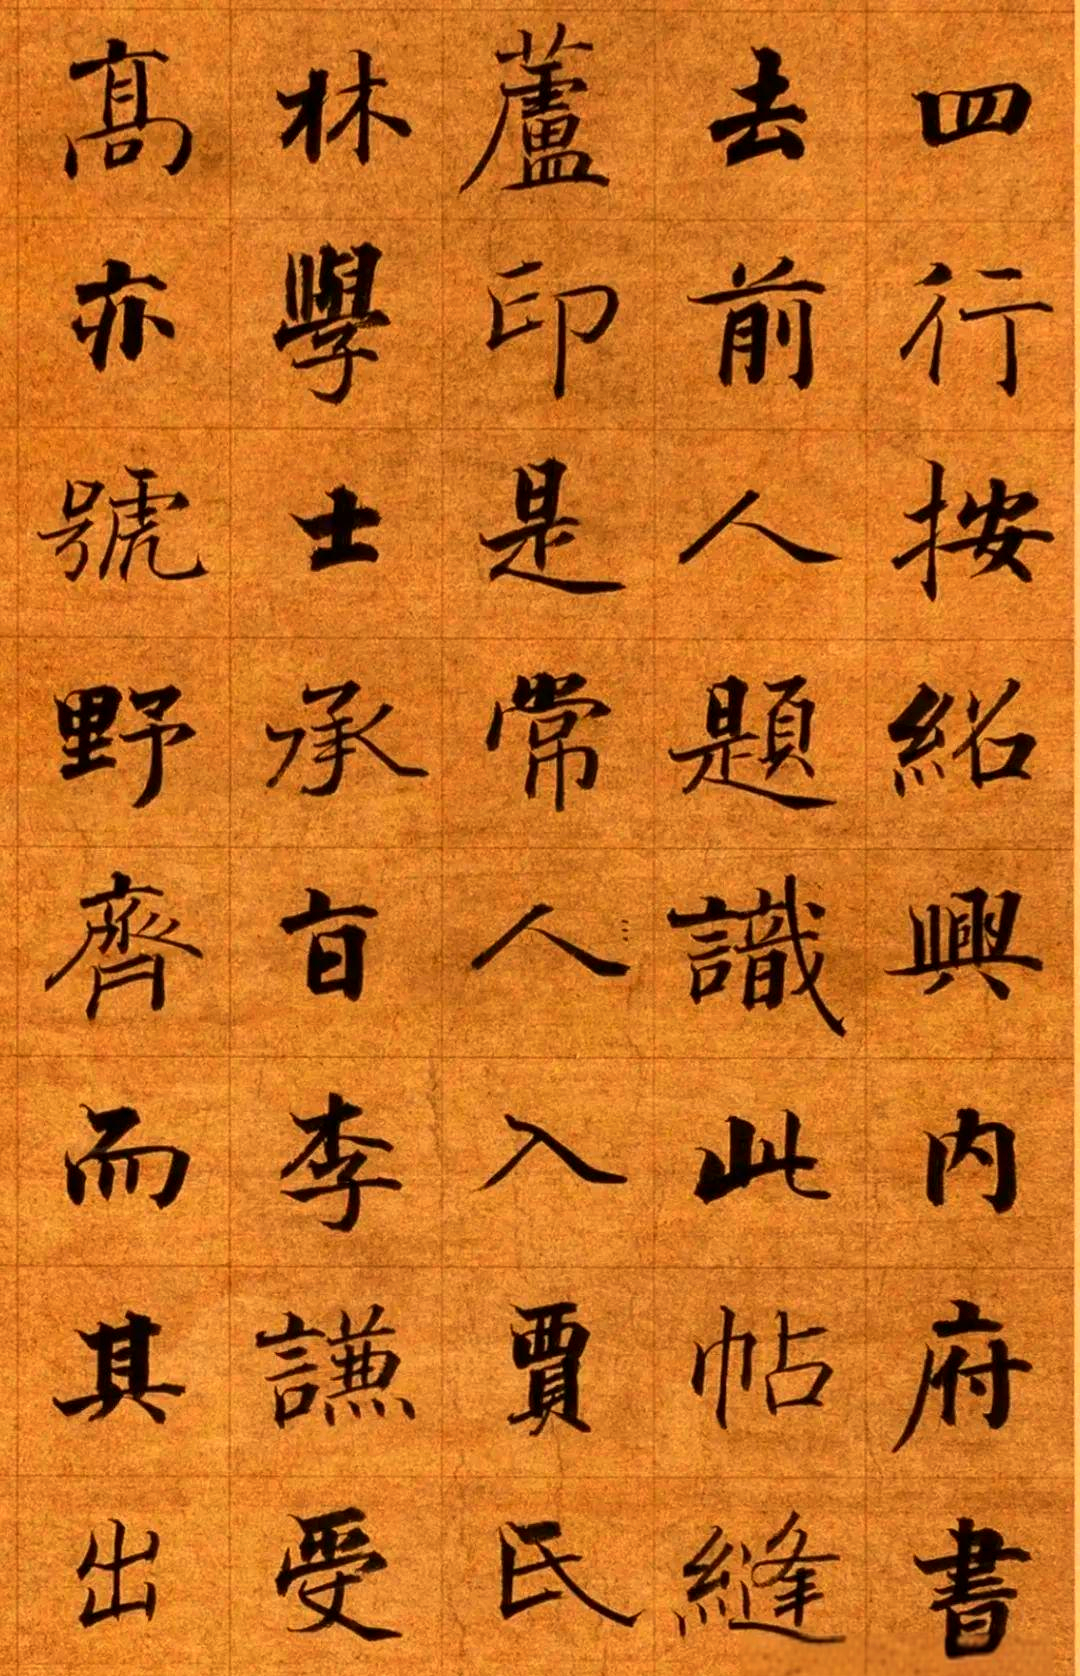 四行按紹興內府書
去前人題識此帖縫
蘆印是常人入賈氏
林學士承旨李謙受
髙亦號野齊而其出